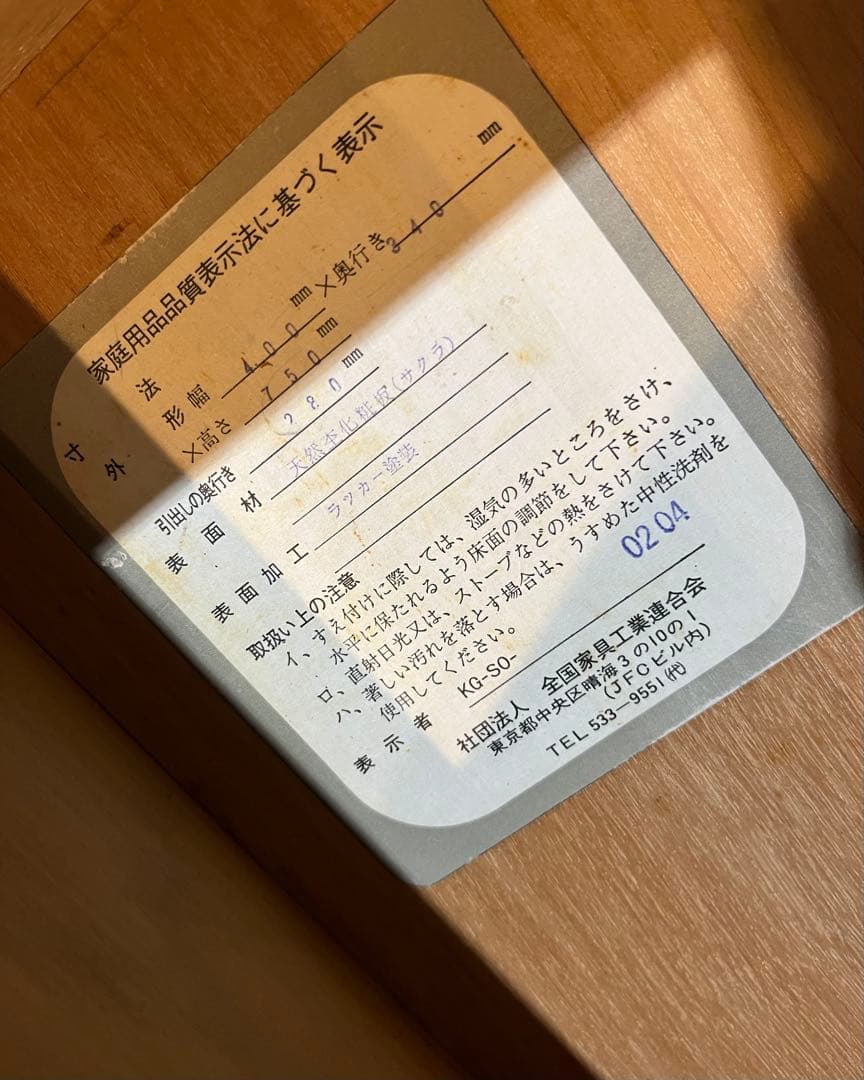 家庭用品品質表示法に基づく表示
寸法
外形幅 400 mm × 奥行き 340 mm
×高さ 750 mm
引出しの奥行き 280 mm
表面材 天然杢化粧板(サクラ)
表面加工 ラッカー塗装
取扱い上の注意
イ、すえ付けに際しては、湿気の多いところをさけ、
水平に保たれるよう床面の調節をして下さい。
ロ、直射日光又は、ストーブなどの熱をさけて下さい。
ハ、著しい汚れを落とす場合は、うすめた中性洗剤を
使用してください。
表示者 KG-SO- 0204
社団法人 全国家具工業連合会
東京都中央区晴海3の10の1
(JFCビル内)
TEL 533-9551(代)